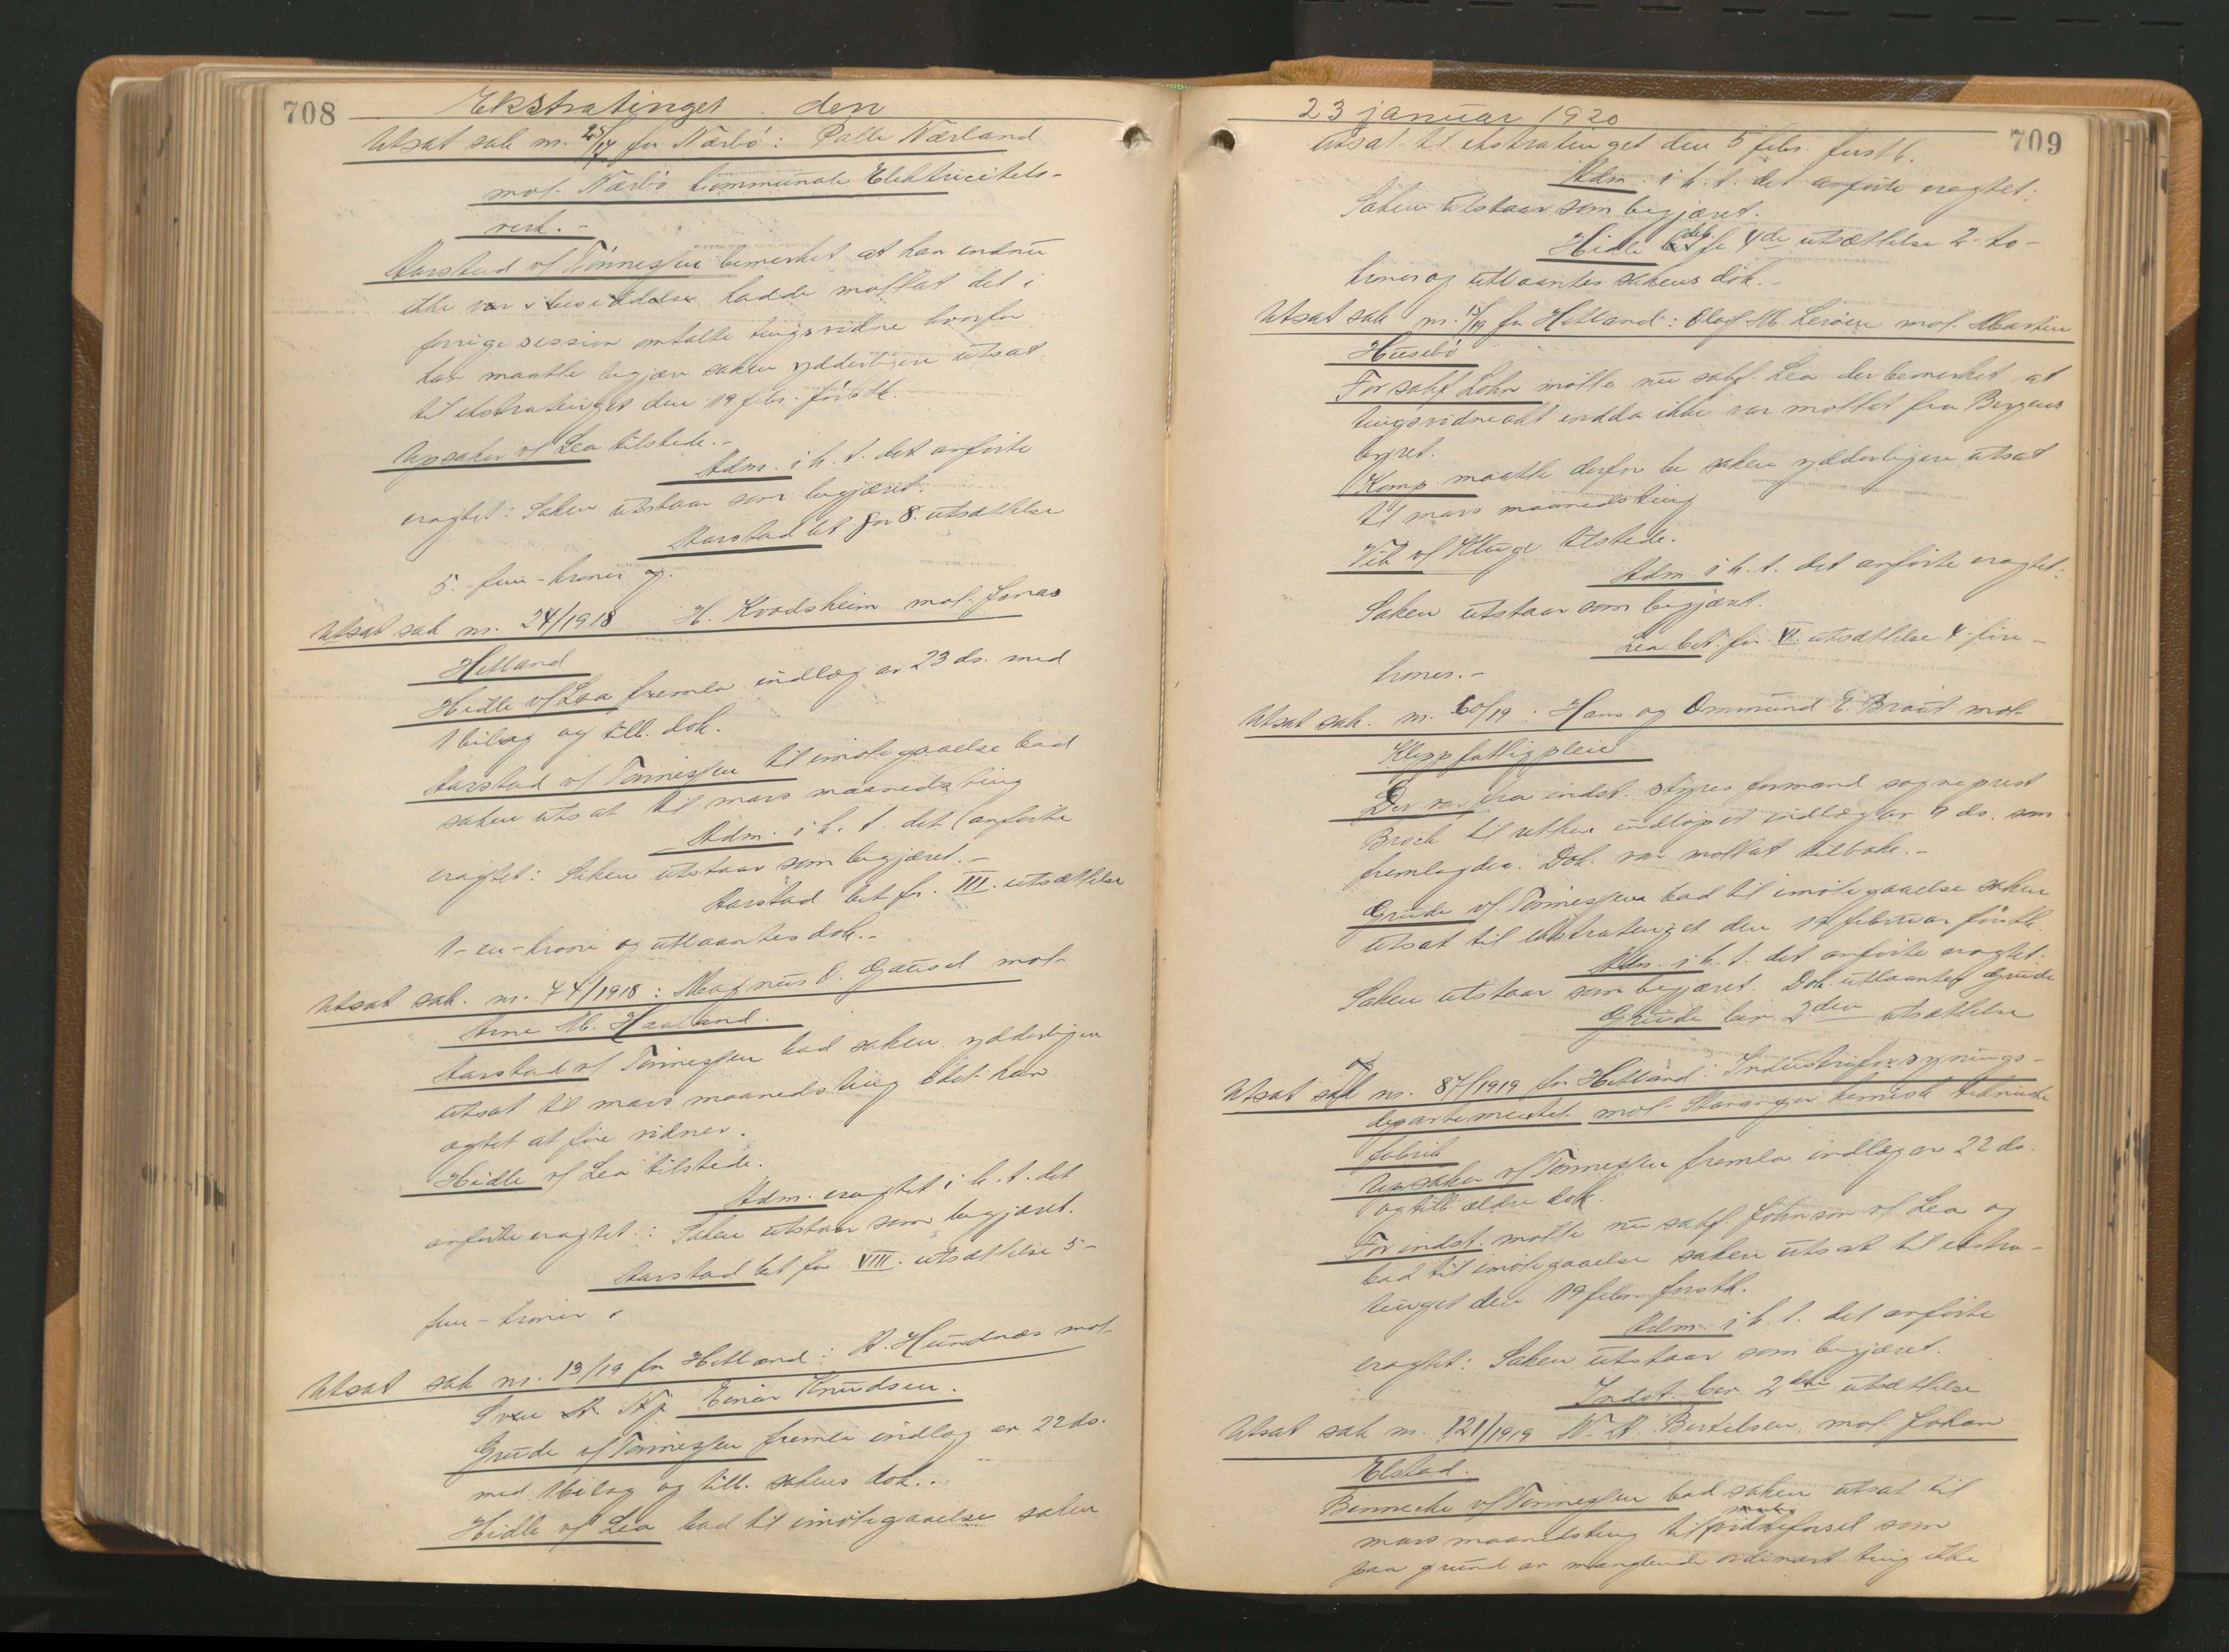 708
Ekstratinget den
Utsat sak nr. 25/17 for Nærbö: Palle Nærland
mot Nærbö kommunale Elektricitets-
verk.-
Aarstad v/ Tönnessen bemerket at han endnu
ikke var i besiddelse hadde mottat det i
forrige session omtalte tingsvidne hvorfor
han maatte begjære saken ydderligere utsat
til ekstratinget den 19 febr. förstk.
Opsaker v/ Lea tilstede.-
Adm. i h. t. det anförte
eragtet: Saken utstaar som begjæret.
Aarstad bet for 8. utsættelse
5.-fem-kroner og
Utsat sak nr. 24/1918 H. Kvadsheim mot Jonas
Hetland
Hidle v/ Lea fremla indlæg av 23 ds. med
1 bilag og tilb. dok.
Aarstad v/ Tönnessen til imötegaaelse bad
saken utsat til mars maanedsting
Adm. i h. t. det anförte
eragtet: Saken utstaar som begjæret.-
Aarstad bet for III. utsættelse
1-en-krone og utlaantes dok.-
Utsat sak. nr. 74/1918: Magnus O. Gausel mot
Arne M. Haaland.
Aarstad v/ Tönnessen bad saken ydderligere
utsat til mars maanedsting idet han
agtet at före vidner.
Hidle v/ Lea tilstede.
Adm. eragtet i h. t. det
anförte eragtet: Saken utstaar som begjæret.
Aarstad bet for VIII. utsættelse 5-
fem-kroner.
Utsat sak nr. 13/19 for Hetland: A. Hundnæs mot
Einar Knudsen.
Grude v/ Tönnessen fremla indlæg av 22 ds.
med 1 bilag og tilb. sakens dok..
Hidle v/ Lea bad til imötegaaelse saken
23 januar 1920
709
utsat til ekstratinget den 5 febr. förstk.
Adm. i h. t. det anförte eragtet:
Saken utstaar som begjæret.
Hidle bet. for 4de utsættelse 2-to-
kroner og utlaantes sakens dok.-
Utsat sak nr. 15/19 for Hetland: Olaf M. Leröen mot Martin
Husebö
For sakf Lohn mötte nu sakf. Lea der bemerket at
tingsvidneakt endda ikke var mottat fra Bergens
byret.
Komp. maatte derfor be saken ydderligere utsat
til mars maanedsting
Vik v/ Kluge tilstede.
Adm i h. t. det anförte eragtet:
Saken utstaar som begjæret.
Lea bet. for VI. utsættelse 4-fire-
kroner.-
Utsat sak. nr. 60/19: Hans og Ommund E. Braut mot
Klepp fattigpleie
Der var fra indst. styres formand sogneprest
Broch til retten indlöpet indlæg av 9 ds. som
fremlagdes. Dok. var mottat tilbake.-
Grude v/ Tönnessen bad til imötegaaelse saken
utsat til ekstratinget den 19 februar förstk.
Adm. i h. t. det anförte eragtet:
Saken utstaar som begjæret. Dok. utlaantes Grude
Grude ber. 2den utsættelse
og
Utsat sak nr. 87/1919 for Hetland: Industriforsynings-
departementet mot Stavanger kemisk tekniske
fabrik
Opsaker v/ Tönnessen fremla indlæg av 22 ds.
og tilb. ældre dok.
For indst. mötte nu sakf. Johnson v/ Lea og
bad til imötegaaelse saken utsat til ekstra-
tinget den 19 febr. förstk.
Adm. i h. t. det anförte
eragtet: Saken utstaar som begjæret.
Indst. ber. 2den utsættelse
Utsat sak nr. 121/1919 N. A. Bertelsen mot Johan
Elstad.
Bennecke v/ Tönnessen bad saken utsat til
mars maanedsting til vidneförsel som
paa grund av manglende ordinært ting ikke